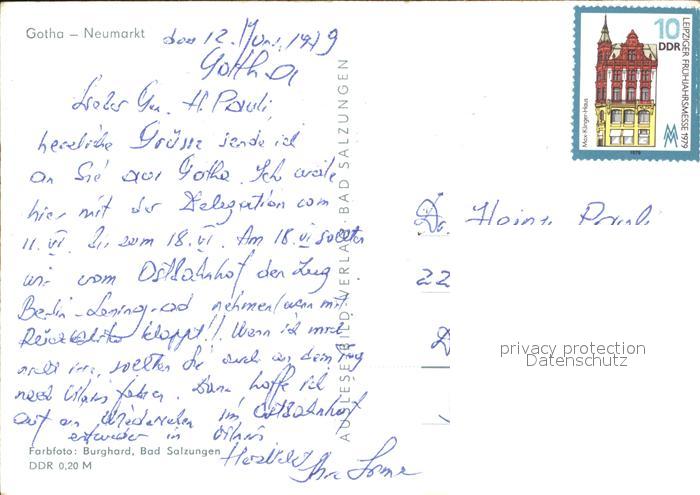 Gotha – Neumarkt
den 12. Juni 1979
Gotha
Lieber Gen. H. Pauli,
herzliche Grüsse sende ich
an Sie aus Gotha. Ich weile
hier mit der Delegation vom
11. VI. bis zum 18. VI. Am 18. VI. sollten
wir vom Ostbahnhof den Zug
Berlin-Leningrad nehmen (wenn mit
klappt!). Wenn ich mich
nicht irre, sollten Sie auch an dem Tag
nach Vilnius fahren. Dann hoffe ich
auf ein Wiedersehen im Ostbahnhof
entweder in Vilnius
Herzlichst Ihre
Farbfoto: Burghard, Bad Salzungen
DDR 0,20 M
AUSLESE-BILD-VERLAG · BAD SALZUNGEN
10
DDR
LEIPZIGER FRÜHJAHRSMESSE 1979
Max-Klinger-Haus
1979
Dr. Heinz Pauli
22
D
privacy protection
Datenschutz